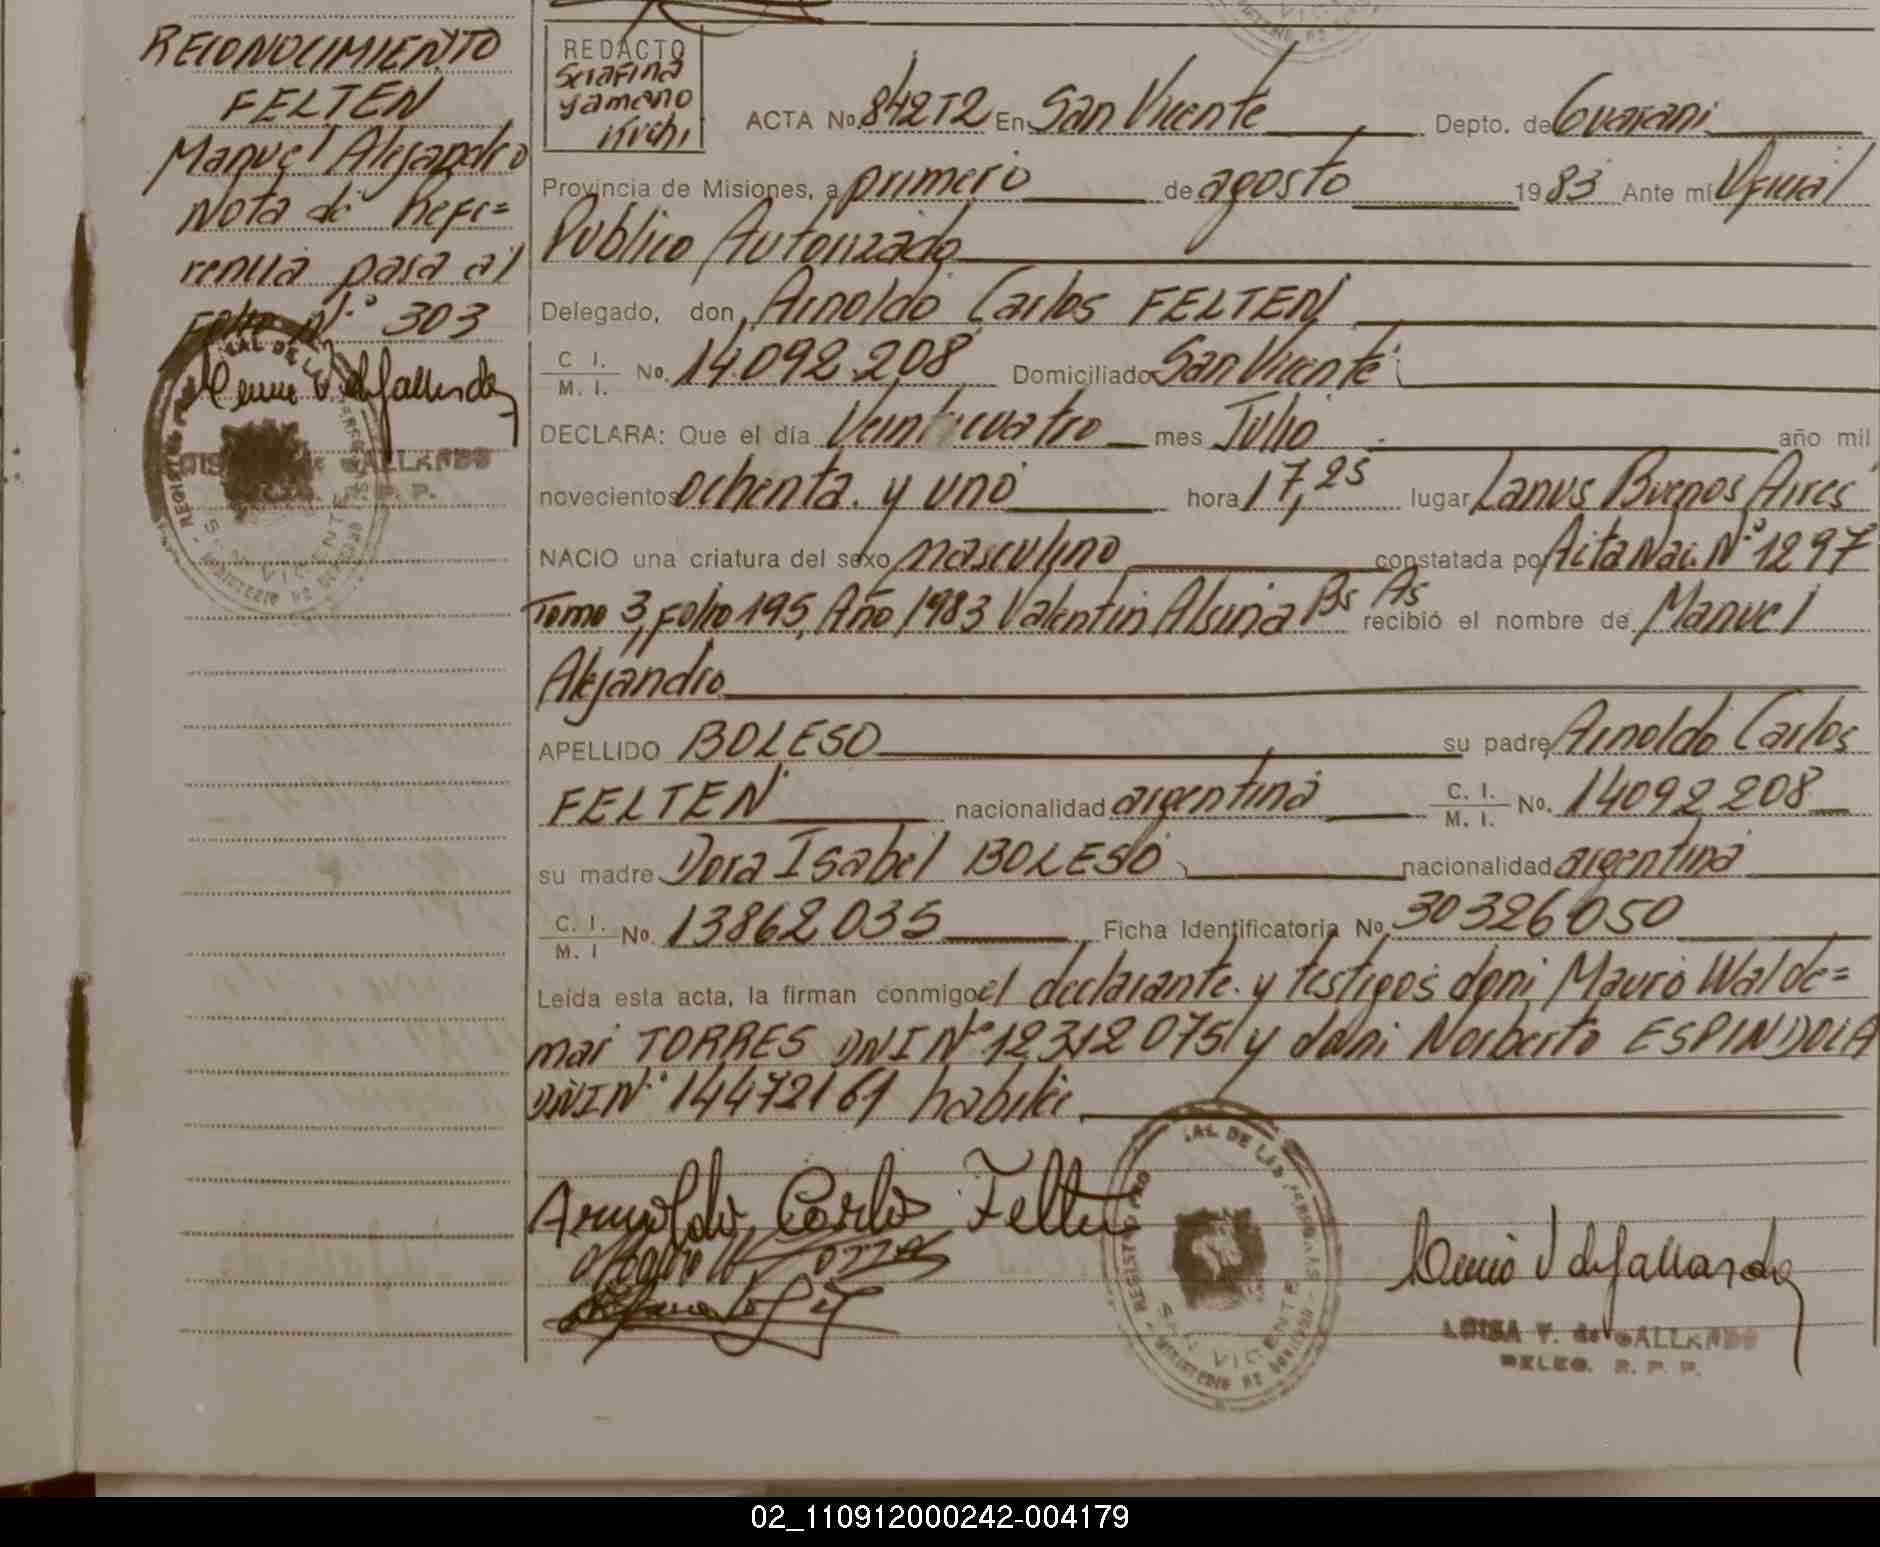 RECONOCIMIENTO
FELTEN
Manuel Alejandro
Nota de Refe=
rencia para al
Folio N° 303
LUISA V. de GALLARDO
R. P. P.
REDACTO
Serafina
Yamano
Kuchi
ACTA No. 842T2 En San Vicente Depto. de Guarani
Provincia de Misiones, a primero de agosto 1983 Ante mi Oficial
Publico Autorizado
Delegado, don, Arnoldo Carlos FELTEN
C. I. / M. I. No. 14.092.208 Domiciliado San Vicente
DECLARA: Que el día Veinticuatro mes Julio año mil
novecientos ochenta. y uno hora 17,25 lugar Lanus Buenos Aires
NACIO una criatura del sexo masculino constatada por Acta Nac. N° 1297
Tomo 3, Folio 195, Año 1983 Valentin Alsina Bs As recibió el nombre de Manuel
Alejandro
APELLIDO BOLESO su padre, Arnoldo Carlos
FELTEN nacionalidad argentina C. I. / M. I. No. 14092208
su madre Dora Isabel BOLESO nacionalidad argentina
C. I. / M. I No. 13862035 Ficha Identificatoria No. 30326050
Leída esta acta, la firman conmigo el declarante. y testigos don; Mauro Walde=
mar TORRES DNI N° 12312075 y don; Norberto ESPINDOLA
DNI N° 14472161 habiles
Arnoldo Carlos Felten
SAN VICENTE
LUISA V. de GALLARDO
DELEG. R. P. P.
02_110912000242-004179